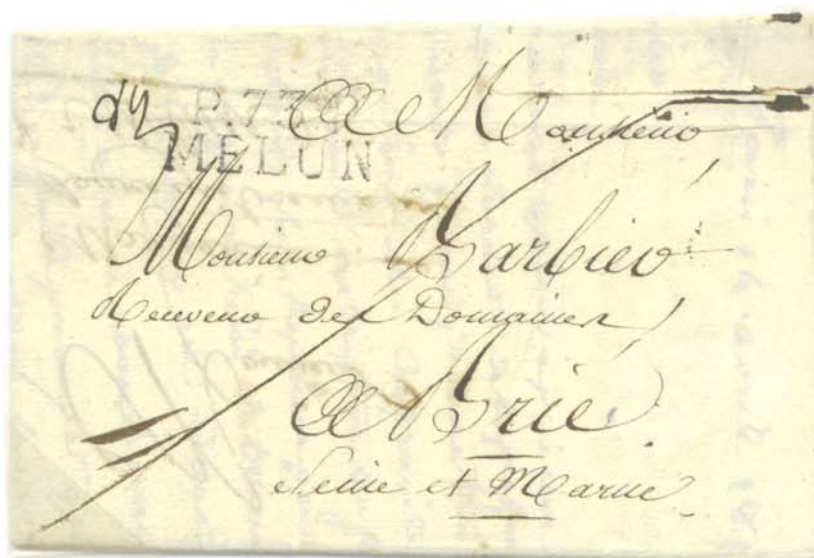 P.73.
MELUN
A Monsieur
Monsieur Barbier
Receveur des Domaines
A Brie
Seine et Marne